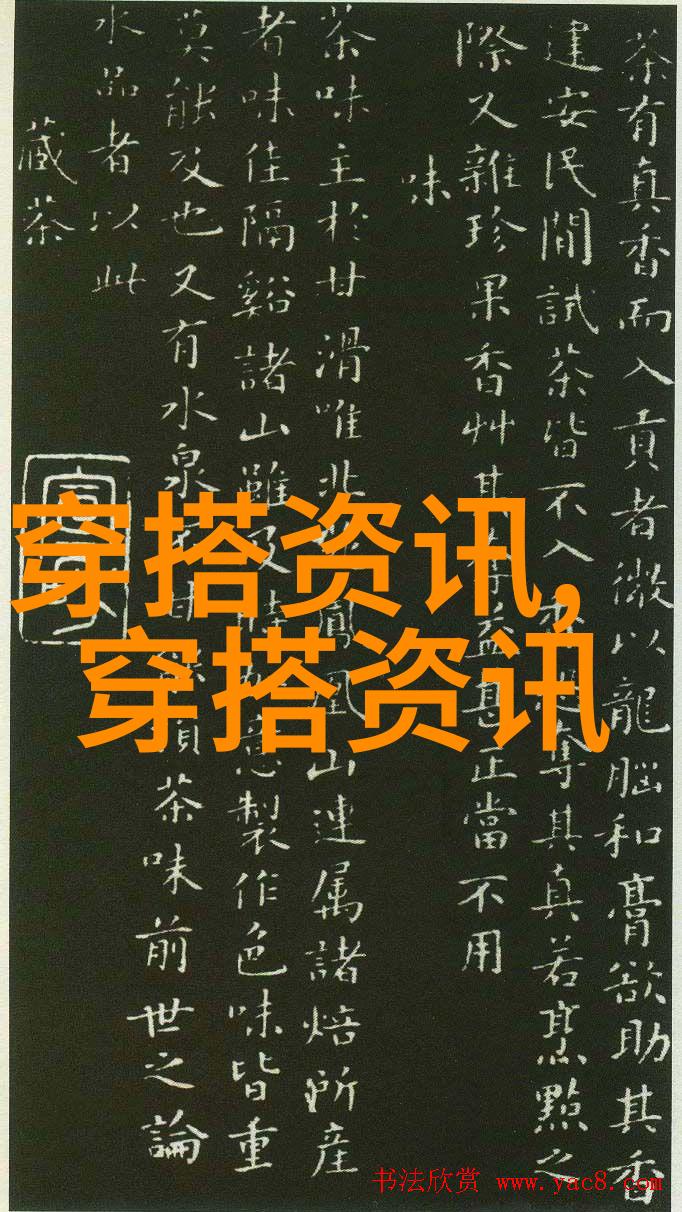 茶有真香而入貢者微以龍腦和膏欲助其香
建安民間試茶皆不入奪其真若烹點之
際又雜珍果香艸其益甚正當不用
味
茶味主於甘滑唯北鳳凰山連属諸焙所産
者味佳隔谿諸山雖及意製作色味皆重
莫能及也又有水泉甘損茶味前世之論
水品者以此
藏茶
穿搭资讯,
穿搭资讯
书法欣赏 www.yac8.com